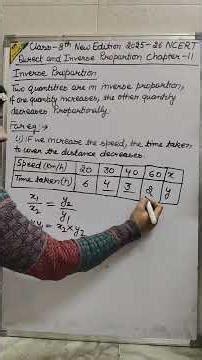 Class-8th New Edition 2025-26 NCERT
Direct and Inverse Proportion Chapter-11
Inverse Proportion
Two quantities are in inverse proportion,
if one quantity increases, the other quantity
decreases Proportionally.
For eg:→
(1) If we increase the speed, the time taken
to cover the distance decreases.
Speed (km/h) 20 30 40 60 x
Time taken (h) 6 4 3 2 y
x₁/x₂ = y₂/y₁
= x₂ x y₂